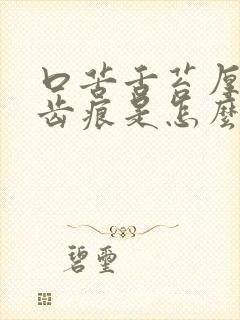 口苦舌苔厚
齿痕是怎麽
碧玺